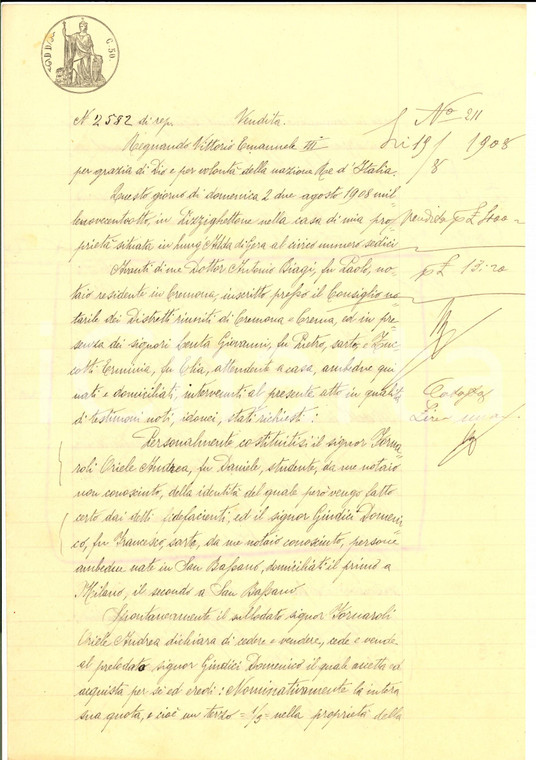 C. 50.
N 2582 di rep. Vendita.
Regnando Vittorio Emanuele III
per grazia di Dio e per volontà della nazione Re d'Italia.
Questo giorno di domenica 2 due agosto 1908 mil=
lenovecentootto, in Pizzighettone nella casa di mia pro=
prietà situata in lung'Adda di Gera al civico numero sedici
Avanti di me Dottor Antonio Biagi, fu Paolo, no=
taio residente in Cremona, inscritto presso il Consiglio no=
tarile dei Distretti riuniti di Cremona e Crema, ed in pre=
senza dei signori Giovanni, fu Pietro, sarto, e
Erminia, fu Elia, attendente a casa, ambedue qui
nati e domiciliati, intervenuti al presente atto in qualità
di testimoni noti, idonei, stati richiesti:
Personalmente costituitisi il signor Forna=
roli Oriele Andrea, fu Daniele, studente, da me notaio
non conosciuto, della identità del quale però vengo fatto
certo dai detti fidefacienti, ed il signor Giudici Domeni=
co, fu Francesco, sarto, da me notaio conosciuto, persone
ambedue nate in San Bassano, domiciliati il primo a
Milano, il secondo a San Bassano
Spontaneamente il sullodato signor Fornaroli
Oriele Andrea dichiara di cedere e vendere, cede e vende
al prelodato signor Giudici Domenico il quale accetta ed
acquista per sè ed eredi: Nominativamente la intera
sua quota, e cioè un terzo = 1/3 = nella proprietà della
No 211
19/8 1908
£ 400
£ 13:20
Lire